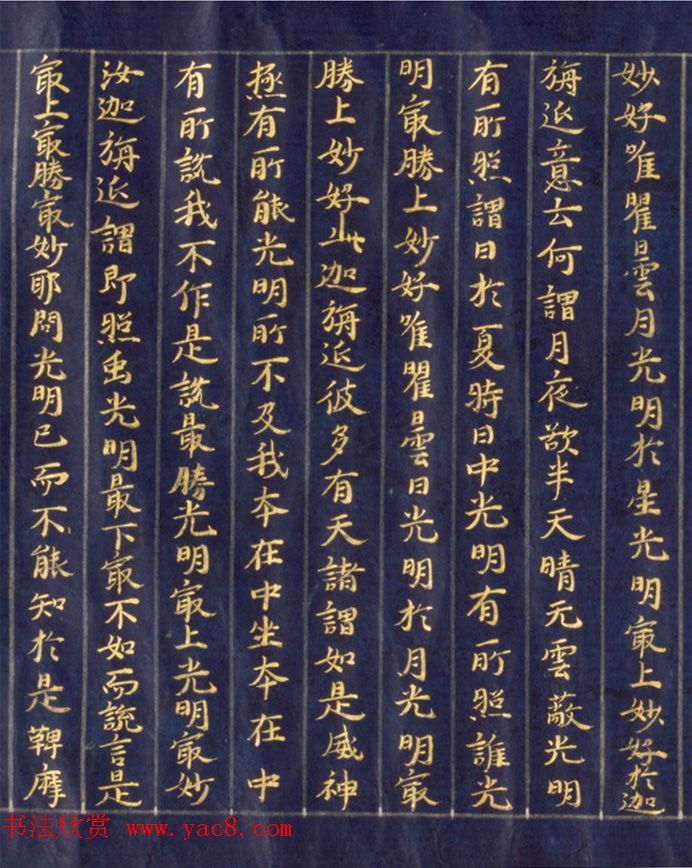 妙好唯瞿曇月光明於星光明冣上妙好於迦
旃延意云何謂月夜欲半天晴无雲蔽光明
有所照謂日於夏時日中光明有所照誰光
明冣勝上妙好唯瞿曇日光明於月光明冣
勝上妙好此迦旃延彼多有天諸謂如是威神
極有所能光明所不及我夲在中坐夲在中
有所說我不作是說最勝光明冣上光明冣妙
汝迦旃延謂即照虫光明最下冣不如而說言是
冣上冣勝冣妙耶問光明已而不能知於是鞞摩
书法欣赏 www.yac8.com